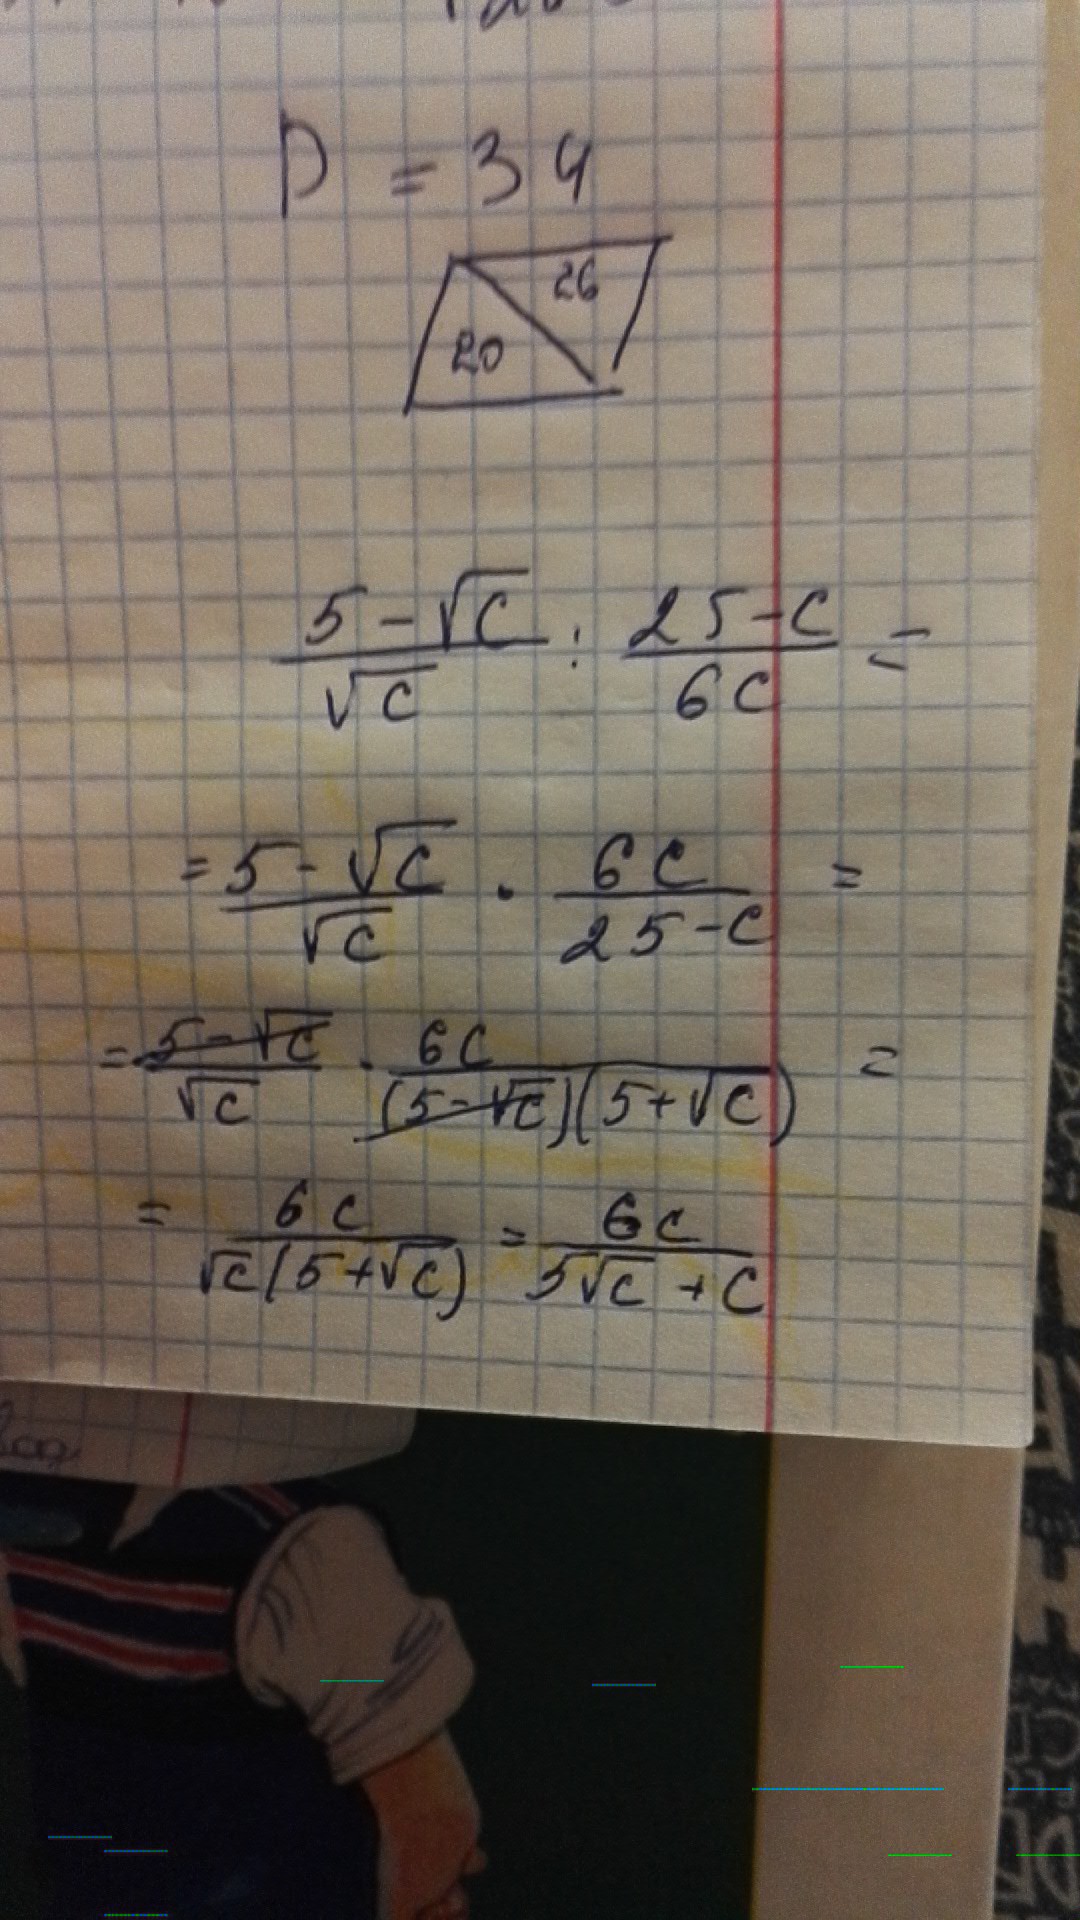 P = 34
26
20
5-√c/√c : 25-c/6c =
= 5-√c/√c · 6c/25-c =
= 5-√c/√c · 6c/(5-√c)(5+√c) =
= 6c/√c(5+√c) = 6c/5√c+c